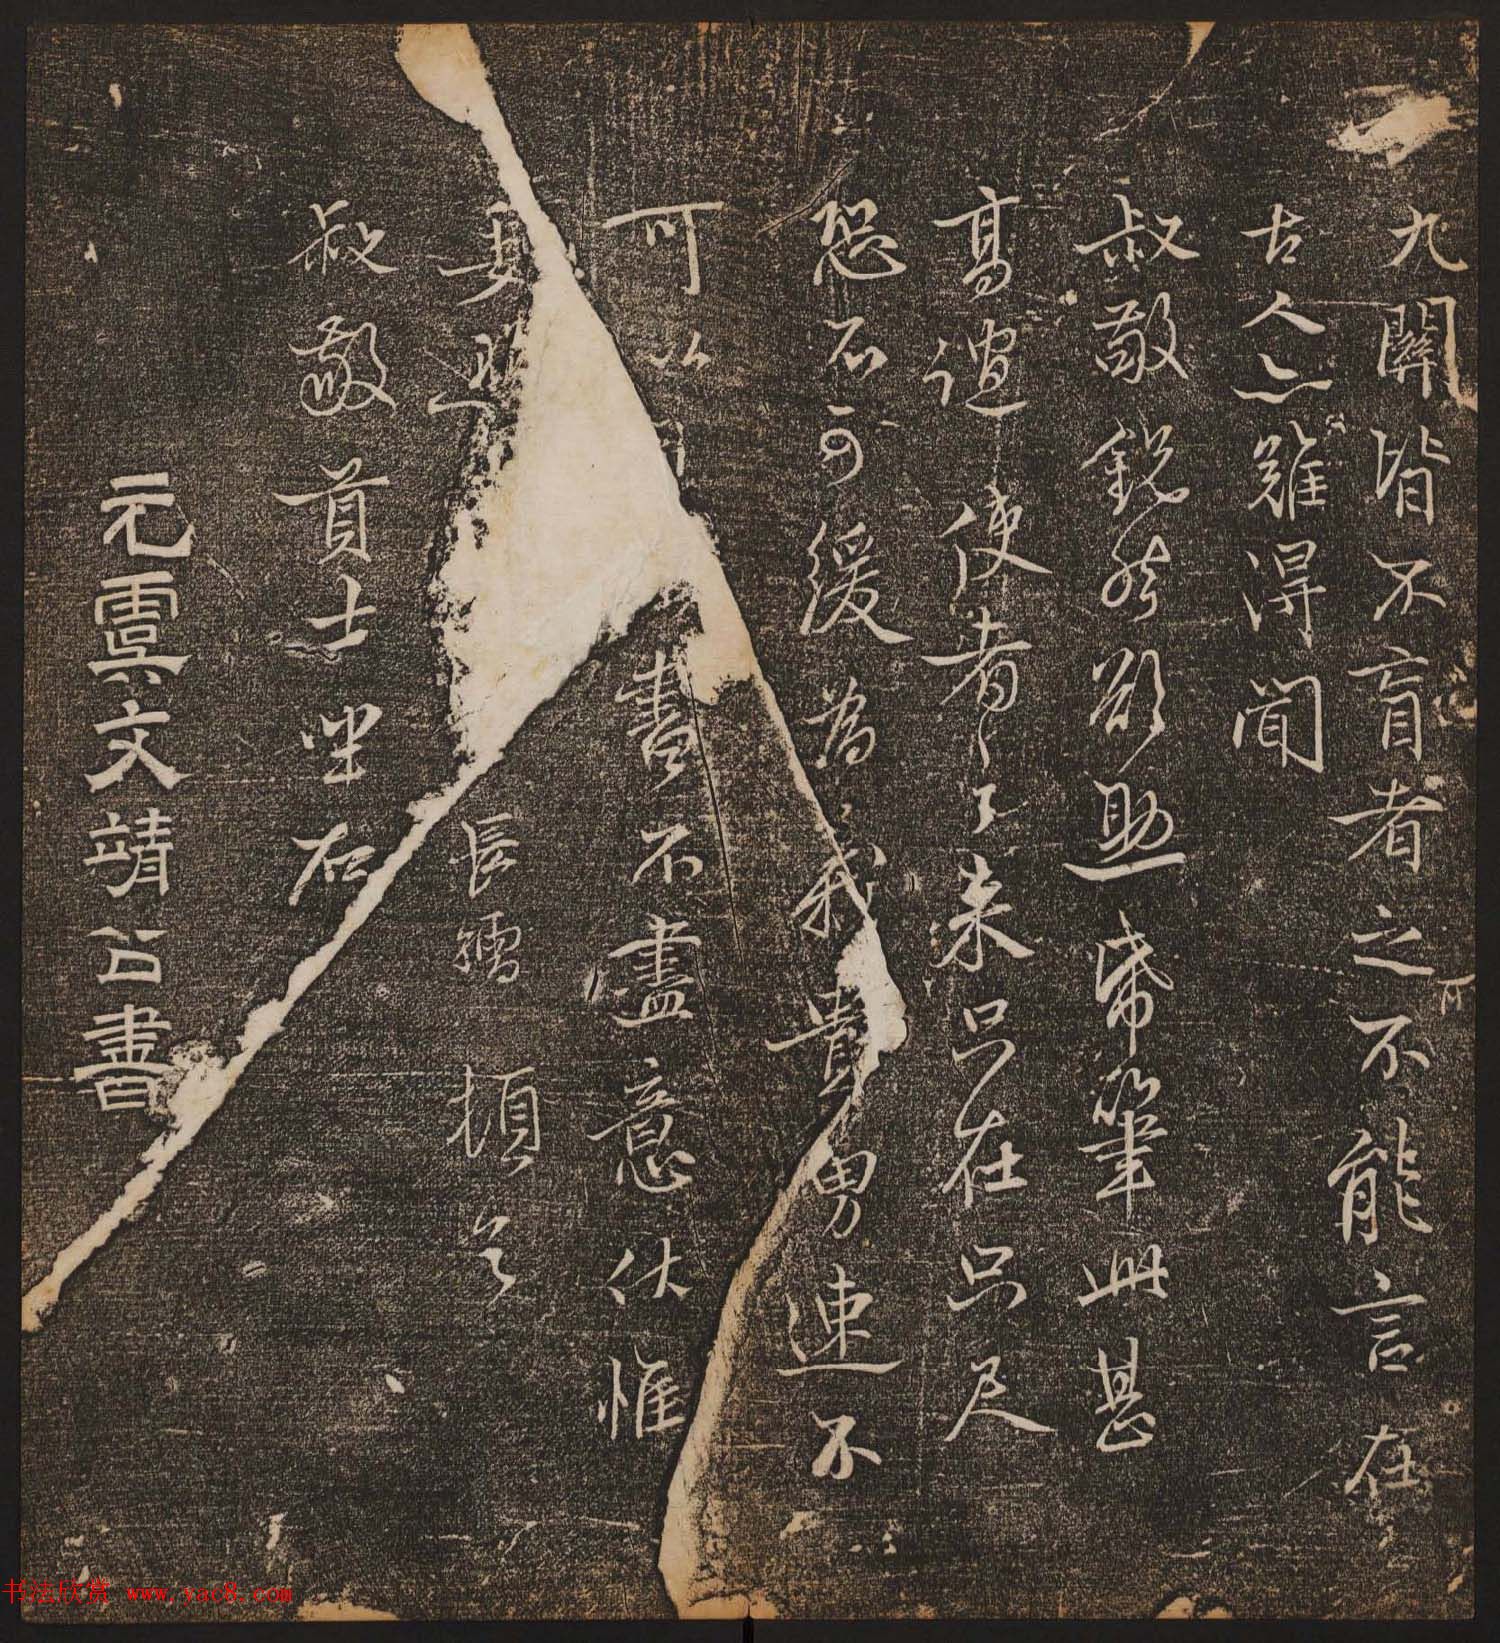 九關皆不盲者之不能言在
古人亦難得聞
叔敬銳然欲助常筆興甚
高誼使者之來只在咫尺
恐不可緩為我貴勇速不
可以書不盡意伏惟
長孺頓首
叔敬首士坐右
元虞文靖公書
书法欣赏 www.yac8.com